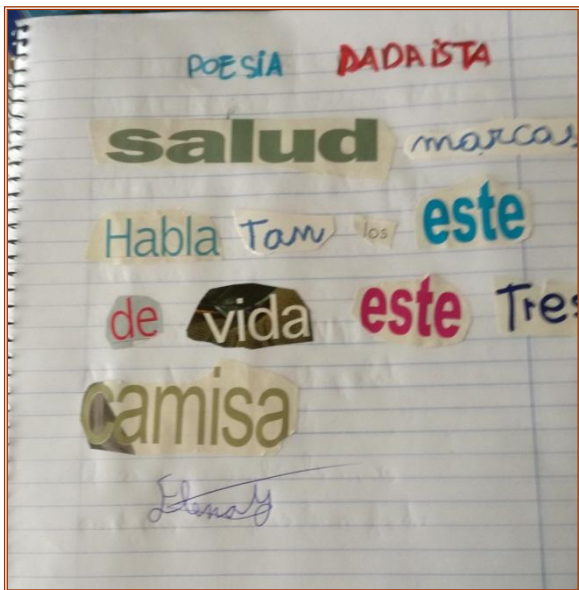 POESÍA DADAíSTA
salud marcas
Habla Tan los este
de vida este Tres
camisa
Elena Y